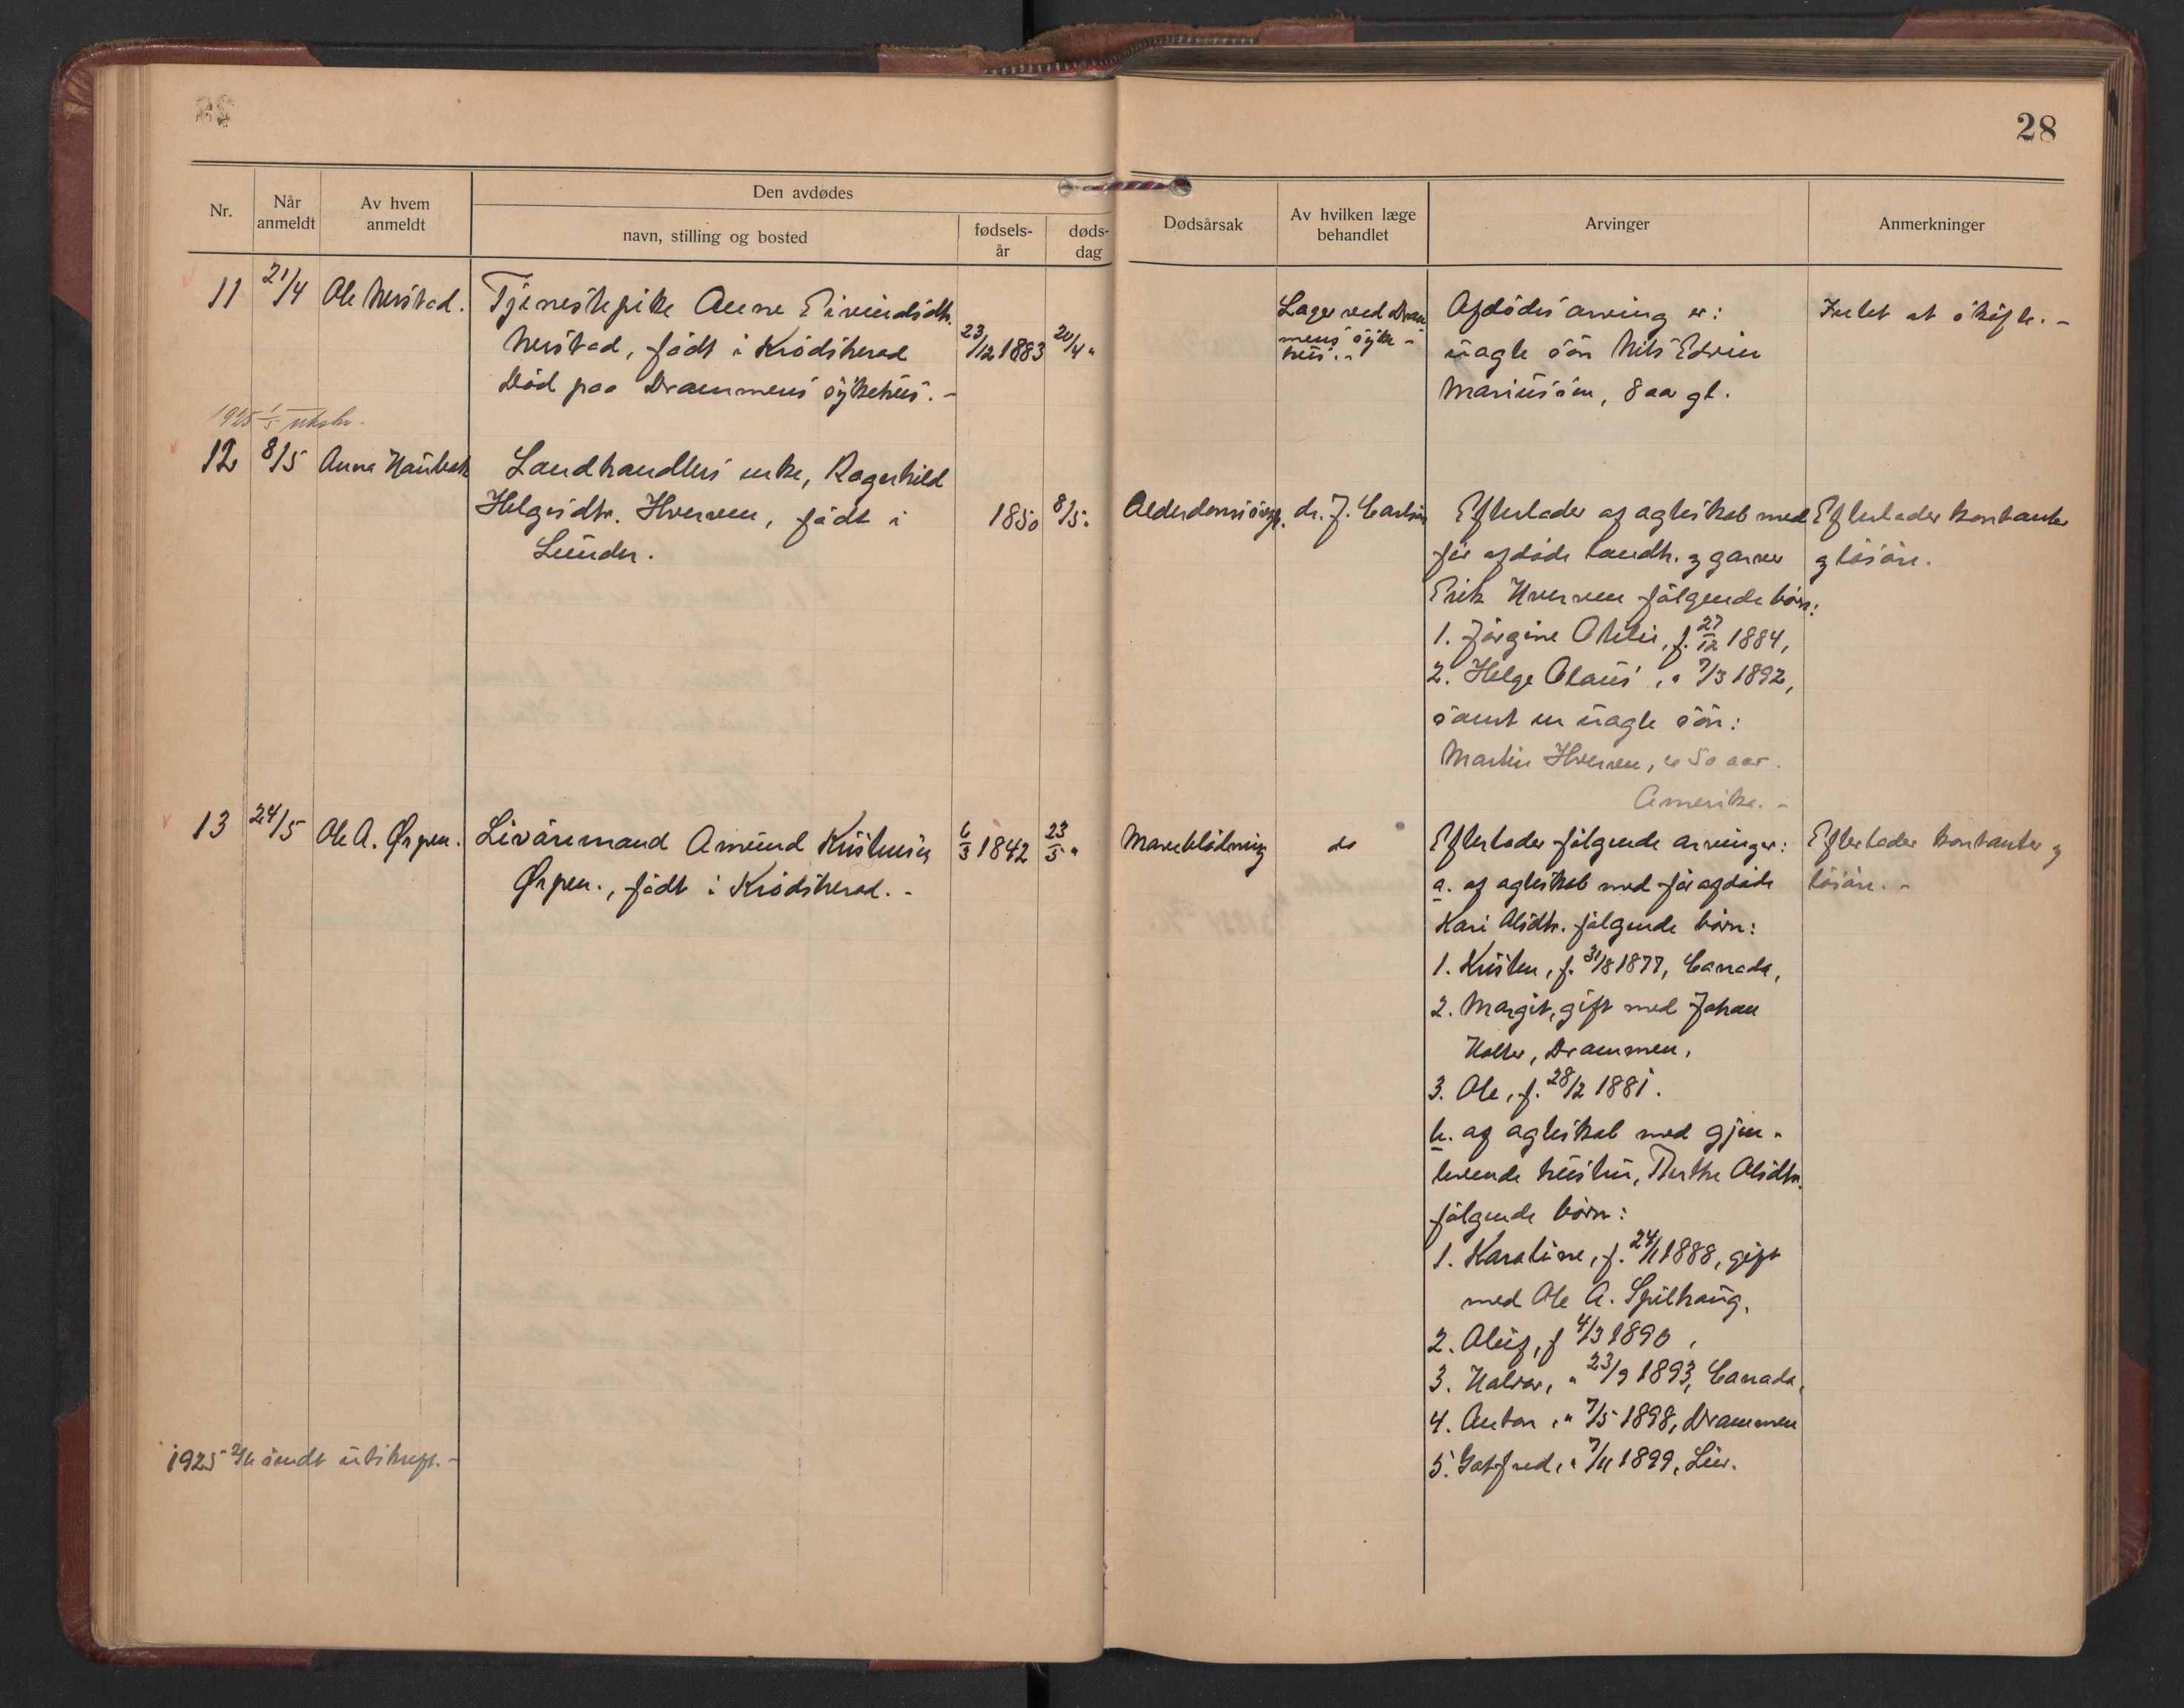 28
Nr.
Når anmeldt
Av hvem anmeldt
Den avdødes
navn, stilling og bosted
fødsels-år
døds-dag
Dødsårsak
Av hvilken læge behandlet
Arvinger
Anmerkninger
11 21/4 Ole Nerstad.
Tjenestepike Anne Eivindsdtr.
Nerstad, født i Krødsherad
Død paa Drammens sykehus. -
23/12 1883 20/4 "
Læger ved Dram
mens syke -
hus. -
Afdødes arving er:
uægte søn Nils Edvin
Mariussøn, 8 aar gl.
Intet at skifte. -
1925 1/5 utskr.
12 8/5 Anna Haubak
Landhandlers enke, Ragnhild
Helgesdtr. Hverven, født i
Lunder.
1850 8/5 "
Alderdomssvagh. dr. J. Carlsen
Efterlader af ægteskab med
før afdøde landh. og garver
Erik Hverven følgende børn:
1. Jørgine Othilie, f. 27/12 1884,
2. Helge Olaus, " 7/3 1892,
samt en uægte søn:
Martin Hverven, ca 50 aar.
Amerika. -
Efterlader kontanter
og løsøre.
13 24/5 Ole A. Ørpen.
Livøremand Amund Kristensen
Ørpen., født i Krødsherad. -
6/3 1842 23/5 "
Maveblødning
do
Efterlader følgende arvinger:
a. af ægteskab med før afdøde
Kari Olsdtr. følgende børn:
1. Kristen, f. 31/8 1877, Canada,
2. Margit, gift med Johan
Holter, Drammen,
3. Ole, f. 28/2 1881.
b. af ægteskab med gjen-
levende hustru, Berthe Olsdtr.
følgende børn:
1. Karoline, f. 24/11 1888, gift
med Ole A. Spilhaug,
2. Oluf, f 4/3 1890,
3. Halvor, " 23/9 1893, Canada,
4. Anton, " 7/5 1898, Drammen
5. Gotfred, " 7/11 1899, Lier.
Efterlader kontanter og
løsøre. -
1925 2/6 sendt utskrift. -